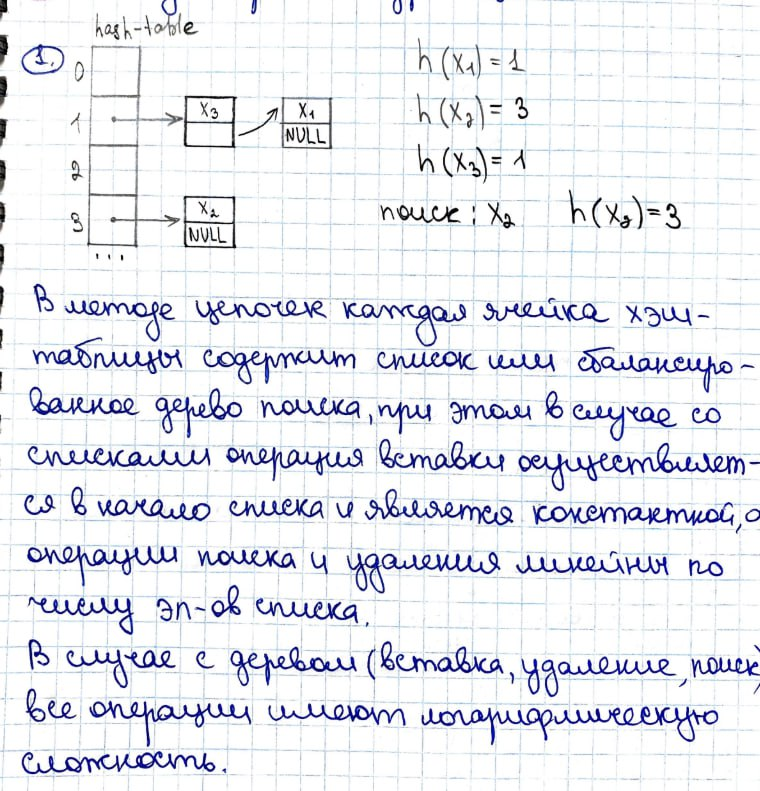 hash-table
1.
0
h(x₁) = 1
1
x₃
x₁
NULL
h(x₂) = 3
2
h(x₃) = 1
3
x₂
NULL
поиск: x₂ h(x₂)=3
...
В методе цепочек каждая ячейка хэш-
таблицы содержит список или сбалансиро-
ванное дерево поиска, при этом в случае со
списками операция вставки осуществляет-
ся в начало списка и является константной, а
операции поиска и удаления линейны по
числу эл-ов списка.
В случае с деревом (вставка, удаление, поиск)
все операции имеют логарифмическую
сложность.